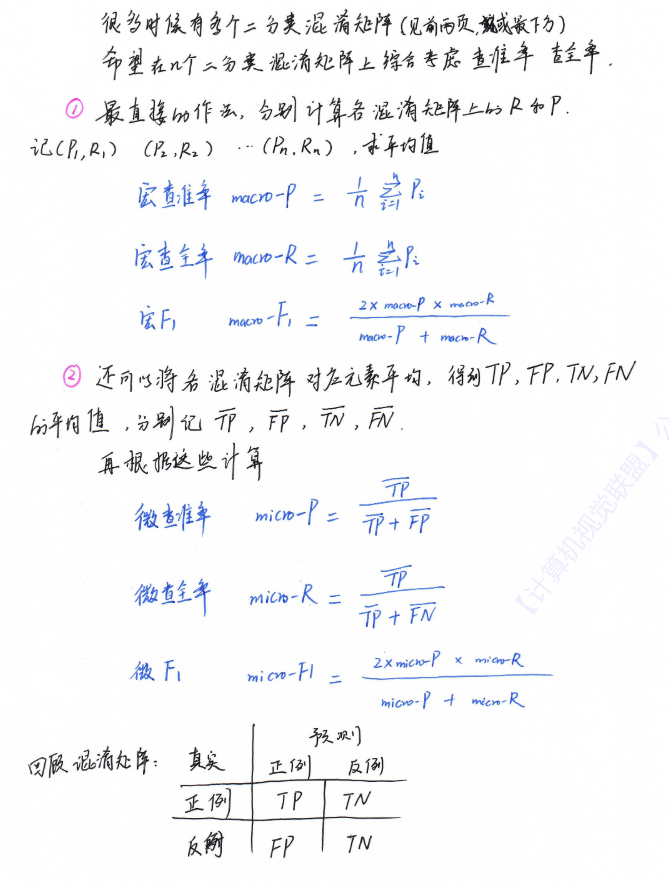 很多时候有多个二分类混淆矩阵(见前两页,或最下方)
希望在n个二分类混淆矩阵上综合考虑 查准率 查全率.
① 最直接的作法,分别计算各混淆矩阵上的R和P.
记(P₁,R₁) (P₂,R₂) …(Pn,Rn),求平均值
宏查准率 macro-P = 1/n Σⁿᵢ₌₁ Pᵢ
宏查全率 macro-R = 1/n Σⁿᵢ₌₁ Pᵢ
宏F₁ macro-F₁ = 2×macro-P × macro-R / macro-P + macro-R
② 还可以将各混淆矩阵对应元素平均,得到TP, FP, TN, FN
的平均值,分别记 T̅P̅, F̅P̅, T̅N̅, F̅N̅.
再根据这些计算
微查准率 micro-P = T̅P̅ / T̅P̅ + F̅P̅
微查全率 micro-R = T̅P̅ / T̅P̅ + F̅N̅
微F₁ micro-F1 = 2×micro-P × micro-R / micro-P + micro-R
回顾混淆矩阵: 真实 预测
正例 反例
正例 TP TN
反例 FP TN
【计算机视觉联盟】公